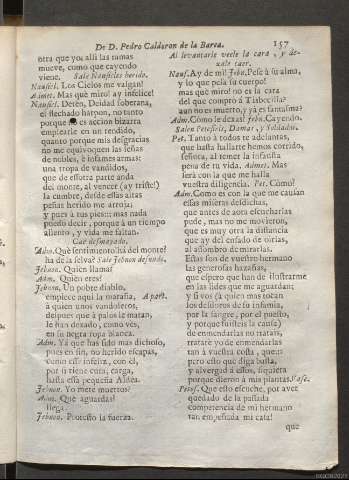 De D. Pedro Calderon de la Barca. 157
otra que yo; alli las ramas
mueve, como que cayendo
viene. Sale Nausicles herido.
Nausicl. Los Cielos me valgan!
Admet. Mas què miro! ay infelice!
Nausicl. Deten, Deidad soberana,
el flechado harpon, no tanto
porque es accion bizarra
emplearle en un rendido,
quanto porque mis desgracias
no me equivoquen las señas
de nobles, è infames armas:
una tropa de vandidos,
que de essotra parte anda
del monte, al vencer (ay triste!)
la cumbre, desde essas altas
peñas herido me arroja;
y pues à tus pies::: mas nada
puedo decir, porque à un tiempo
aliento, y vida me faltan.
Cae desmayado.
Adm. Què sentimiento hà del monte!
ha de la selva? Sale Jebnon desnudo.
Jebnon. Quien llama?
Adm. Quien eres?
Jebnon. Un pobre diablo,
empiece aqui la maraña, Apart.
à quien unos vandoleros,
despues que à palos le matan,
le han dexado, como veis,
en su negra ropa blanca.
Adm. Yà que has sido mas dichoso,
pues en fin, no herido escapas,
como esse infeliz, con èl,
por si tiene cura, carga,
hasta essa pequeña Aldea.
Jebnon. Yo mete muertos?
Adm. Què aguardas?
llega.
Jebnon. Protesto la fuerza.
Al levantarle veele la cara, y dexale caer.
Nauf. Ay de mi! Jebn. Pese à su alma,
y lo que pesa su cuerpo!
mas què miro! no es la cara
del que compró à Tisbecilla?
aun no es muerto, y yà es fantasma?
Adm. Como le dexas? Jebn. Cayendo.
Salen Petosiris, Damas, y Soldados.
Pet. Tanto à todos te adelantas,
que hasta hallarte hemos corrido,
señora, al temer la infausta
pena de tu vida. Admet. Mas
serà con la que me halla
vuestra diligencia. Pet. Còmo?
Adm. Como es con la que me causan
essas miseras desdichas,
que antes de aora escucharlas
pude, mas no me movieron,
que es muy otra la distancia
que ay del ensado de oirlas,
al assombro de mirarlas.
Estas son de vuestro hermano
las generosas hazañas,
que espero que han de ilustrarme
en las lides que me aguardan;
y si vos (à quien mas tocan
los desdoros de su infamia,
por la sangre, por el puesto,
y porque fuisteis la causa)
de enmendarlas no tratais,
tratarè yo de enmendarlas
tan à vuestra costa, que:::
pero esto que diga basta,
y alvergad à essos, siquiera
porque dieron à mis plantas. Vase.
Petos. Que esto escuche, por aver
quedado de la passada
competencia de mi hermano
tan empeñada mi casa!
que